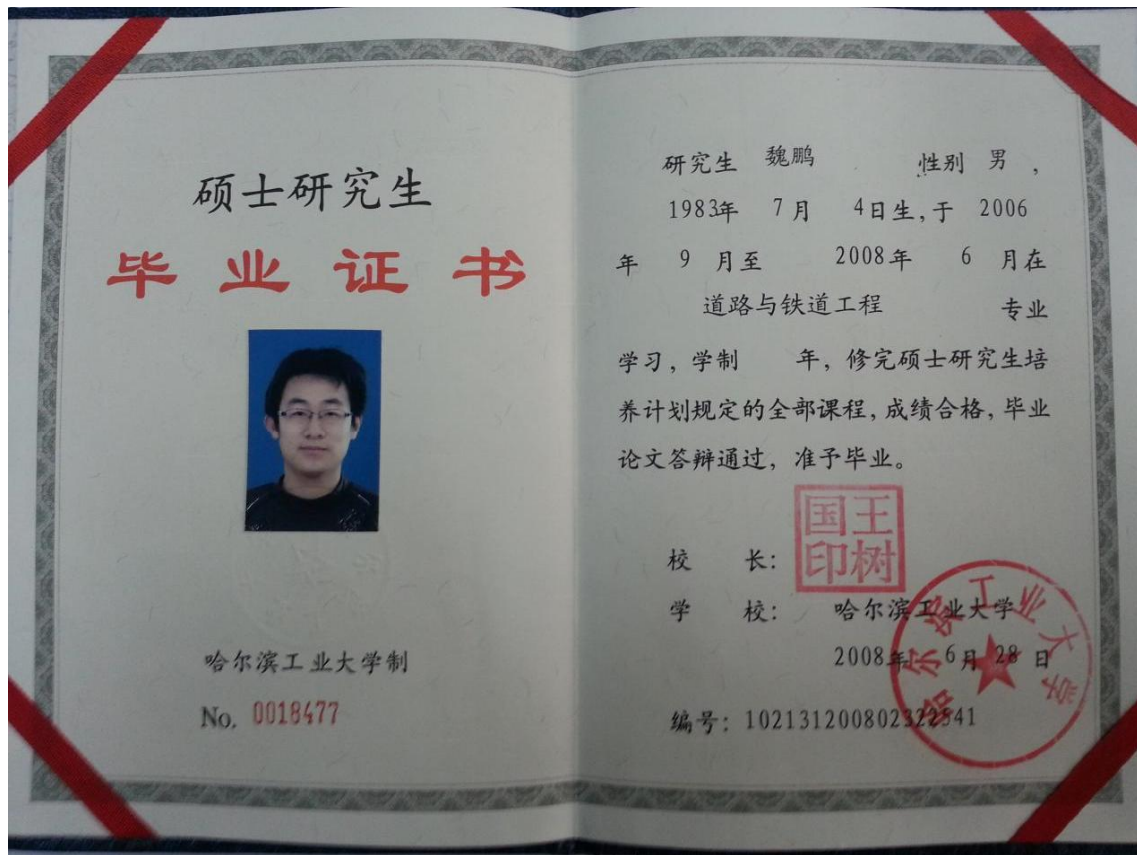 硕士研究生
毕业证书
哈尔滨工业大学制
No. 0018477
研究生 魏鹏 性别 男 ,
1983年 7月 4日生,于 2006
年 9 月至 2008年 6 月在
道路与铁道工程 专业
学习, 学制 年, 修完硕士研究生培
养计划规定的全部课程, 成绩合格, 毕业
论文答辩通过, 准予毕业。
王树国印
校 长:
学 校: 哈尔滨工业大学
2008年 6月 28 日
哈尔滨工业大学
编号: 102131200802322541